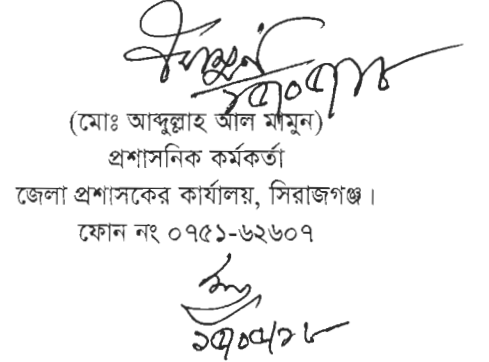 ১৫/০৫/১৮
(মোঃ আব্দুল্লাহ আল মামুন)
প্রশাসনিক কর্মকর্তা
জেলা প্রশাসকের কার্যালয়, সিরাজগঞ্জ।
ফোন নং ০৭৫১-৬২৬০৭
১৫/০৫/১৮